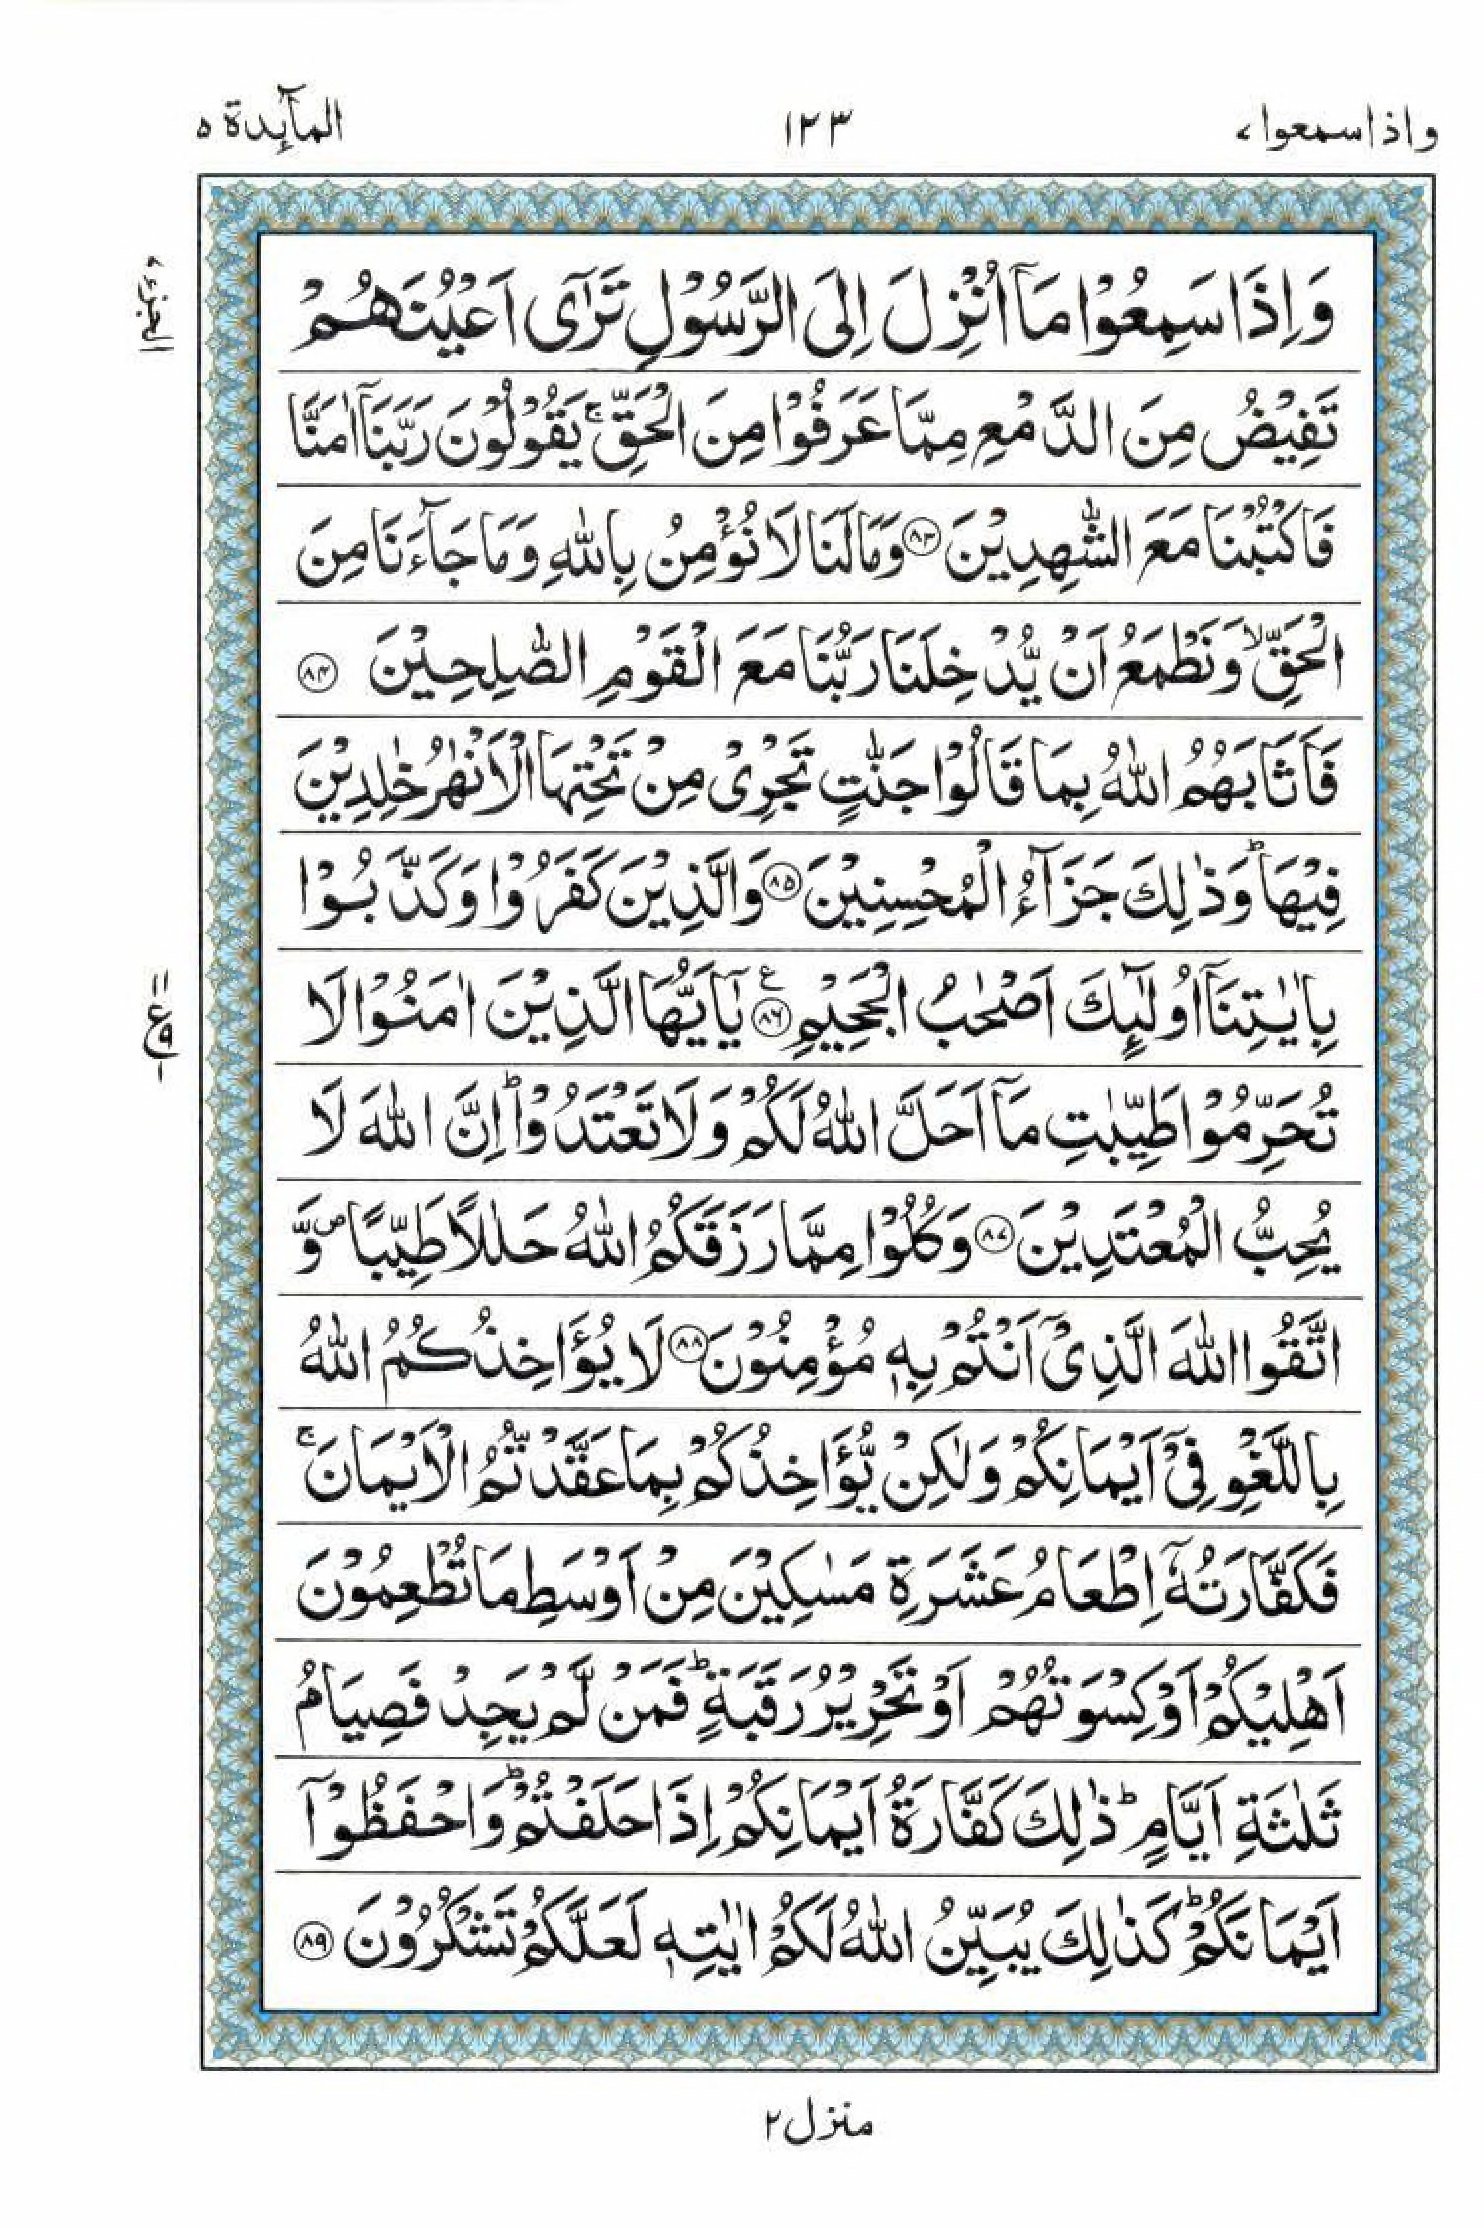 واذاسمعوا ٧
١٢٣
المآئدة ٥
الجزء ٧
وَاِذَا سَمِعُوْا مَآ اُنْزِلَ اِلَى الرَّسُوْلِ تَرٰٓى اَعْيُنَهُمْ
تَفِيْضُ مِنَ الدَّمْعِ مِمَّا عَرَفُوْا مِنَ الْحَقِّ ۚ يَقُوْلُوْنَ رَبَّنَآ اٰمَنَّا
فَاكْتُبْنَا مَعَ الشّٰهِدِيْنَ ﴿٨٣﴾ وَمَا لَنَا لَا نُؤْمِنُ بِاللّٰهِ وَمَا جَآءَنَا مِنَ
الْحَقِّ ۙ وَنَطْمَعُ اَنْ يُّدْخِلَنَا رَبُّنَا مَعَ الْقَوْمِ الصّٰلِحِيْنَ ﴿٨٤﴾
فَاَثَابَهُمُ اللّٰهُ بِمَا قَالُوْا جَنّٰتٍ تَجْرِيْ مِنْ تَحْتِهَا الْاَنْهٰرُ خٰلِدِيْنَ
فِيْهَا ؕ وَذٰلِكَ جَزَآءُ الْمُحْسِنِيْنَ ﴿٨٥﴾ وَالَّذِيْنَ كَفَرُوْا وَكَذَّبُوْا
بِاٰيٰتِنَآ اُولٰٓئِكَ اَصْحٰبُ الْجَحِيْمِ ﴿٨٦﴾ ع يٰٓاَيُّهَا الَّذِيْنَ اٰمَنُوْا لَا
تُحَرِّمُوْا طَيِّبٰتِ مَآ اَحَلَّ اللّٰهُ لَكُمْ وَلَا تَعْتَدُوْا ؕ اِنَّ اللّٰهَ لَا
يُحِبُّ الْمُعْتَدِيْنَ ﴿٨٧﴾ وَكُلُوْا مِمَّا رَزَقَكُمُ اللّٰهُ حَلٰلًا طَيِّبًا ۪ وَّ
اتَّقُوا اللّٰهَ الَّذِيْٓ اَنْتُمْ بِهٖ مُؤْمِنُوْنَ ﴿٨٨﴾ لَا يُؤَاخِذُكُمُ اللّٰهُ
بِاللَّغْوِ فِيْٓ اَيْمَانِكُمْ وَلٰكِنْ يُّؤَاخِذُكُمْ بِمَا عَقَّدْتُّمُ الْاَيْمَانَ ۚ
فَكَفَّارَتُهٗٓ اِطْعَامُ عَشَرَةِ مَسٰكِيْنَ مِنْ اَوْسَطِ مَا تُطْعِمُوْنَ
اَهْلِيْكُمْ اَوْ كِسْوَتُهُمْ اَوْ تَحْرِيْرُ رَقَبَةٍ ؕ فَمَنْ لَّمْ يَجِدْ فَصِيَامُ
ثَلٰثَةِ اَيَّامٍ ؕ ذٰلِكَ كَفَّارَةُ اَيْمَانِكُمْ اِذَا حَلَفْتُمْ ؕ وَاحْفَظُوْٓا
اَيْمَانَكُمْ ؕ كَذٰلِكَ يُبَيِّنُ اللّٰهُ لَكُمْ اٰيٰتِهٖ لَعَلَّكُمْ تَشْكُرُوْنَ ﴿٨٩﴾
منزل ٢